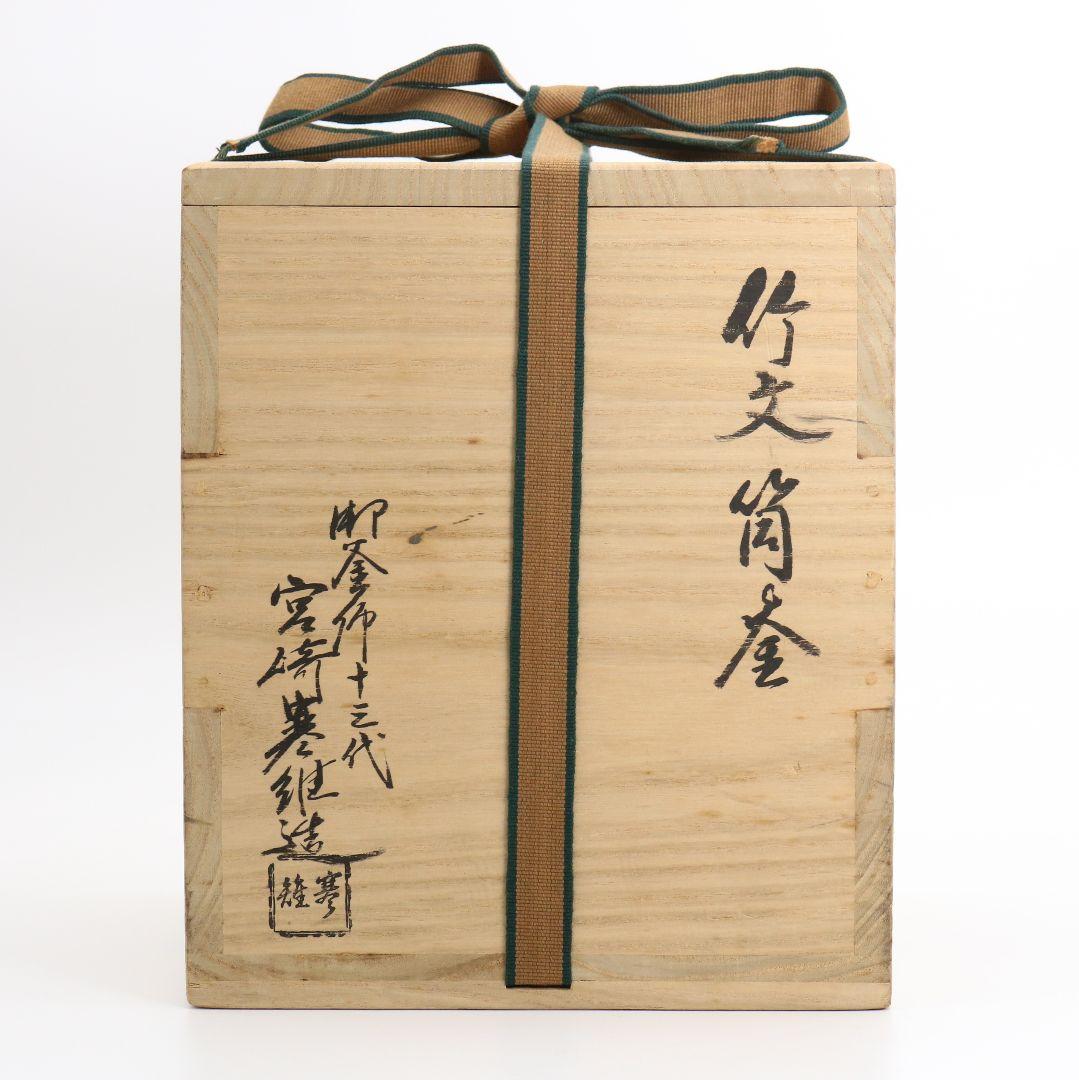 竹文筒釜
御釜師十三代
宮﨑寒雉造
寒雉